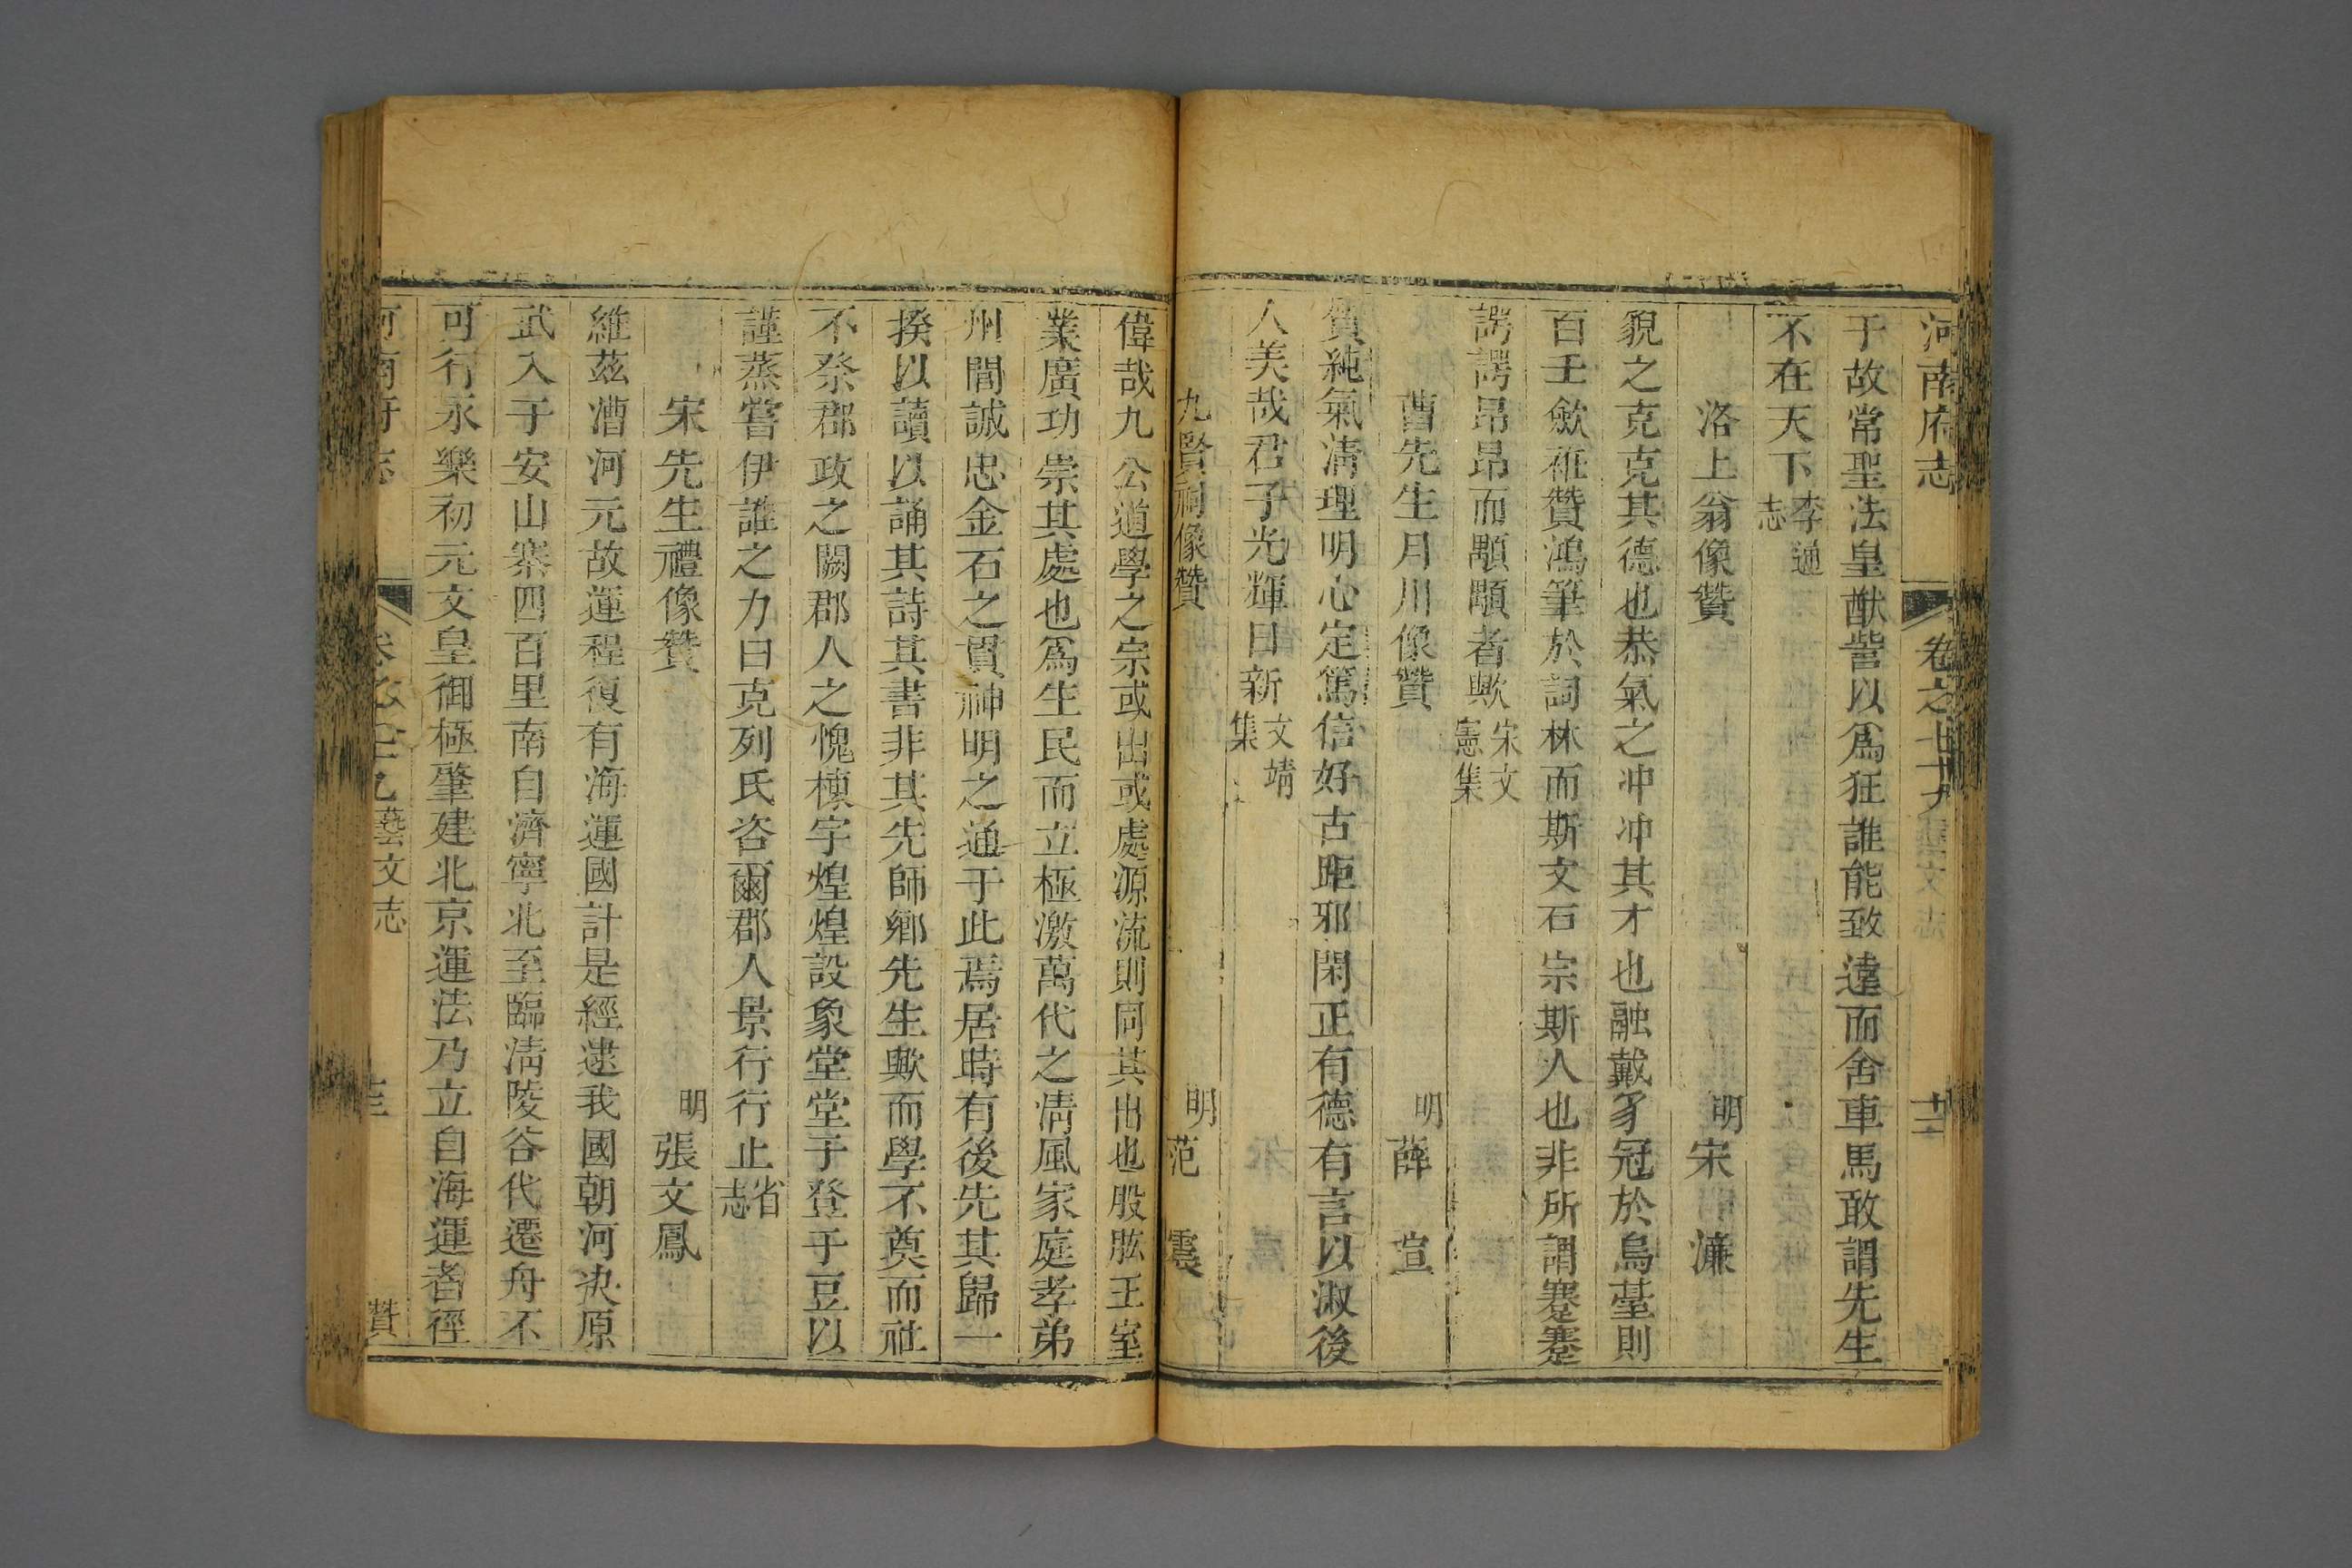 河南府志 卷之七十九 藝文志 十二
于故常聖法皇猷訾以爲狂誰能致遠而舍車馬敢謂先生
不在天下李通志
洛上翁像贊 明宋濂
貌之克克其德也恭氣之冲冲其才也融戴豸冠於烏臺則
百壬斂袵贊鴻筆於詞林而斯文石宗斯人也非所謂蹇蹇
諤諤昂昂而顒顒者歟宋文憲集
曹先生月川像贊 明薛瑄
質純氣清理明心定篤信好古距邪閑正有德有言以淑後
人美哉君子光輝日新文靖集
九賢祠像贊 明范震
偉哉九公道學之宗或出或處源流則同其出也股肱王室
業廣功崇其處也爲生民而立極激萬代之清風家庭孝弟
州閭誠忠金石之貫神明之通于此焉居時有後先其歸一
揆以讀以誦其詩其書非其先師鄉先生歟而學不奠而社
不祭郡政之闕郡人之愧棟宇煌煌設象堂堂于登于豆以
謹蒸嘗伊誰之力曰克列氏咨爾郡人景行行止省志
宋先生禮像贊 明張文鳳
維茲漕河元故運程復有海運國計是經逮我國朝河决原
武入于安山塞四百里南自濟寧北至臨清陵谷代遷舟不
可行永樂初元文皇御極肇建北京運法乃立自海運者徑
河南府志 卷之七十九 藝文志 贊